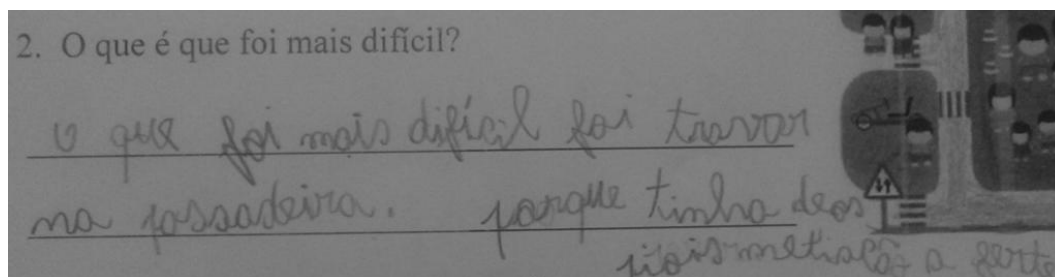 2. O que é que foi mais difícil?
o que foi mais difícil foi travar
na passadeira. porque tinha
a serto